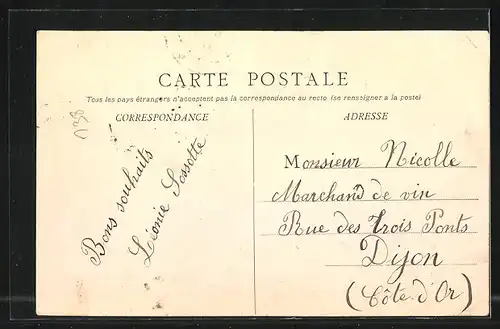 CARTE POSTALE
Tous les pays étrangers n'acceptent pas la correspondance au recto (se renseigner à la poste)
CORRESPONDANCE
ADRESSE
Bons souhaits
Léonie Sossotte
Monsieur Nicolle
Marchand de vin
Rue des Trois Ponts
Dijon
(Côte d'Or)